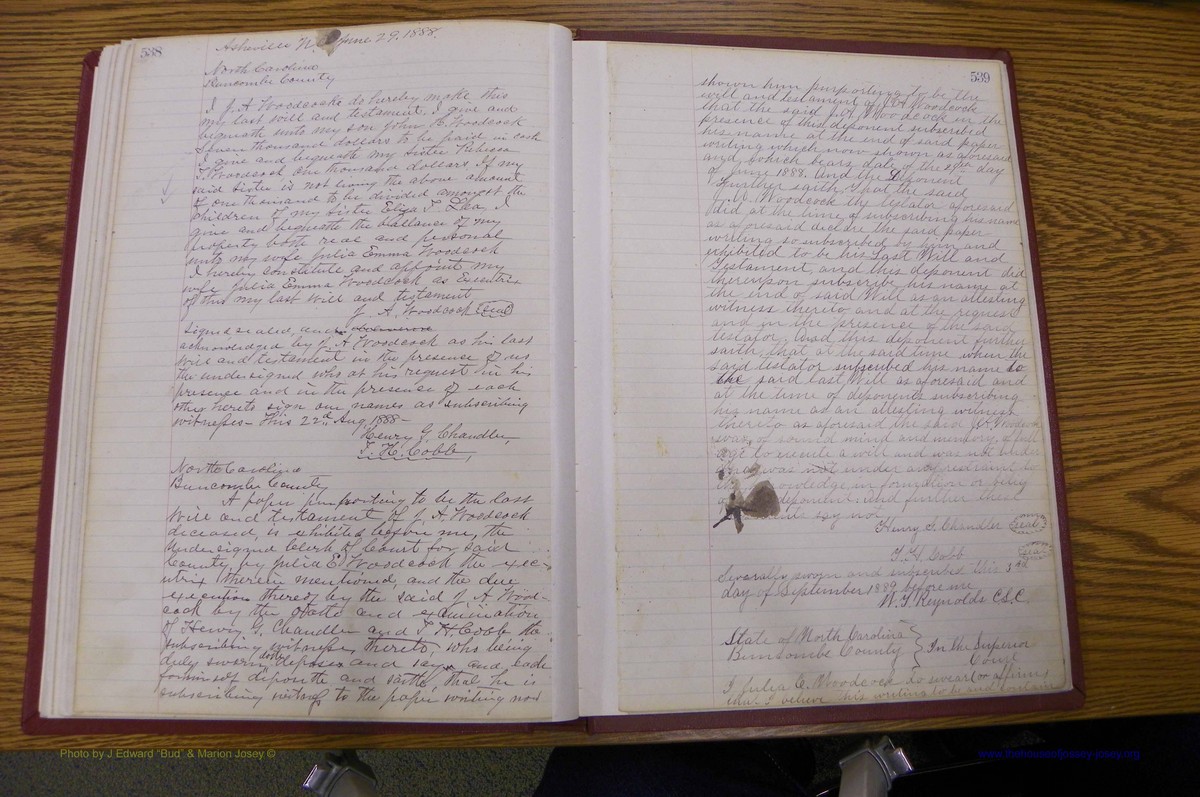 538
Asheville N.C. June 29, 1888.
North Carolina
Buncombe County
I J. A. Woodcock do hereby make this
my last will and testament. I give and
bequeath unto my son John B. Woodcock
Seven thousand dollars to be paid in cash
I give and bequeath my sister Rebissa
T. Woodcock one thousand dollars. If my
said sister is not living the above amount
of one thousand to be divided amongst the
children of my sister Eliza T. I
give and bequeath the ballance of my
property both real and personal
unto my wife Julia Emma Woodcock
I hereby constitute and appoint my
wife Julia Emma Woodcock as Executrix
of this my last will and testament
J. A. Woodcock Seal
Signed sealed, and
acknowledged by J. A Woodcock as his last
will and testament in the presence of us
the undersigned who at his request in his
presence and in the presence of each
other hereto sign our names as subscribing
witnesses - This 22d Aug 1888 -
Henry G. Chandler,
T. H. Cobb,
North Carolina
Buncombe County
A paper purporting to be the last
will and testament of J. A. Woodcock
deceased, is exhibited before me, the
undersigned Clerk of Court for said
County, by Julia E. Woodcock the exec-
utrix therein mentioned, and the due
execution thereof by the said J. A Wood-
cock by the oath and examination
of Henry G. Chandler and T. H. Cobb the
subscribing witnesses thereto, who being
duly sworn doth depose and say and each
for himself deposeth and saith, that he is
subscribing witness to the paper writing now
539
shown him purporting to be the
will and testament of J. A Woodcock
that the said J. A. Woodcock in the
presence of this deponent subscribed
his name at the end of said paper
writing which now shown as aforesaid
and which bears date of the day
of June 1888. And the deponent
further saith, that the said
J. A. Woodcock the testator aforesaid
did at the time of subscribing his name
as aforesaid declare the said paper
writing so subscribed by him and
exhibited to be his Last Will and
Testament, and this deponent did
thereupon subscribe his name at
the end of said Will as an attesting
witness thereto and at the request
and in the presence of the said
testator. And this deponent further
saith, that at the said time when the
said testator subscribed his name to
the said last Will as aforesaid and
at the time of deponents subscribing
his name as an attesting witness
thereto as aforesaid the said J. A. Woodcock
was of sound mind and memory, of full
age to execute a will and was not under
was not under any restraint to
knowledge, information or belief
deponent. And further these
say not
Henry G. Chandler seal
T. H. Cobb seal
Severally sworn and subscribed this 3rd
day of September 1889 before me
W. T. Reynolds C.S.C.
State of North Carolina
Buncombe County } In the Superior
Court
I Julia E. Woodcock do swear (or affirm)
that I believe this writing to be and contain
Photo by J Edward "Bud" & Marion Josey ©
www.thehouseofjossey-josey.org